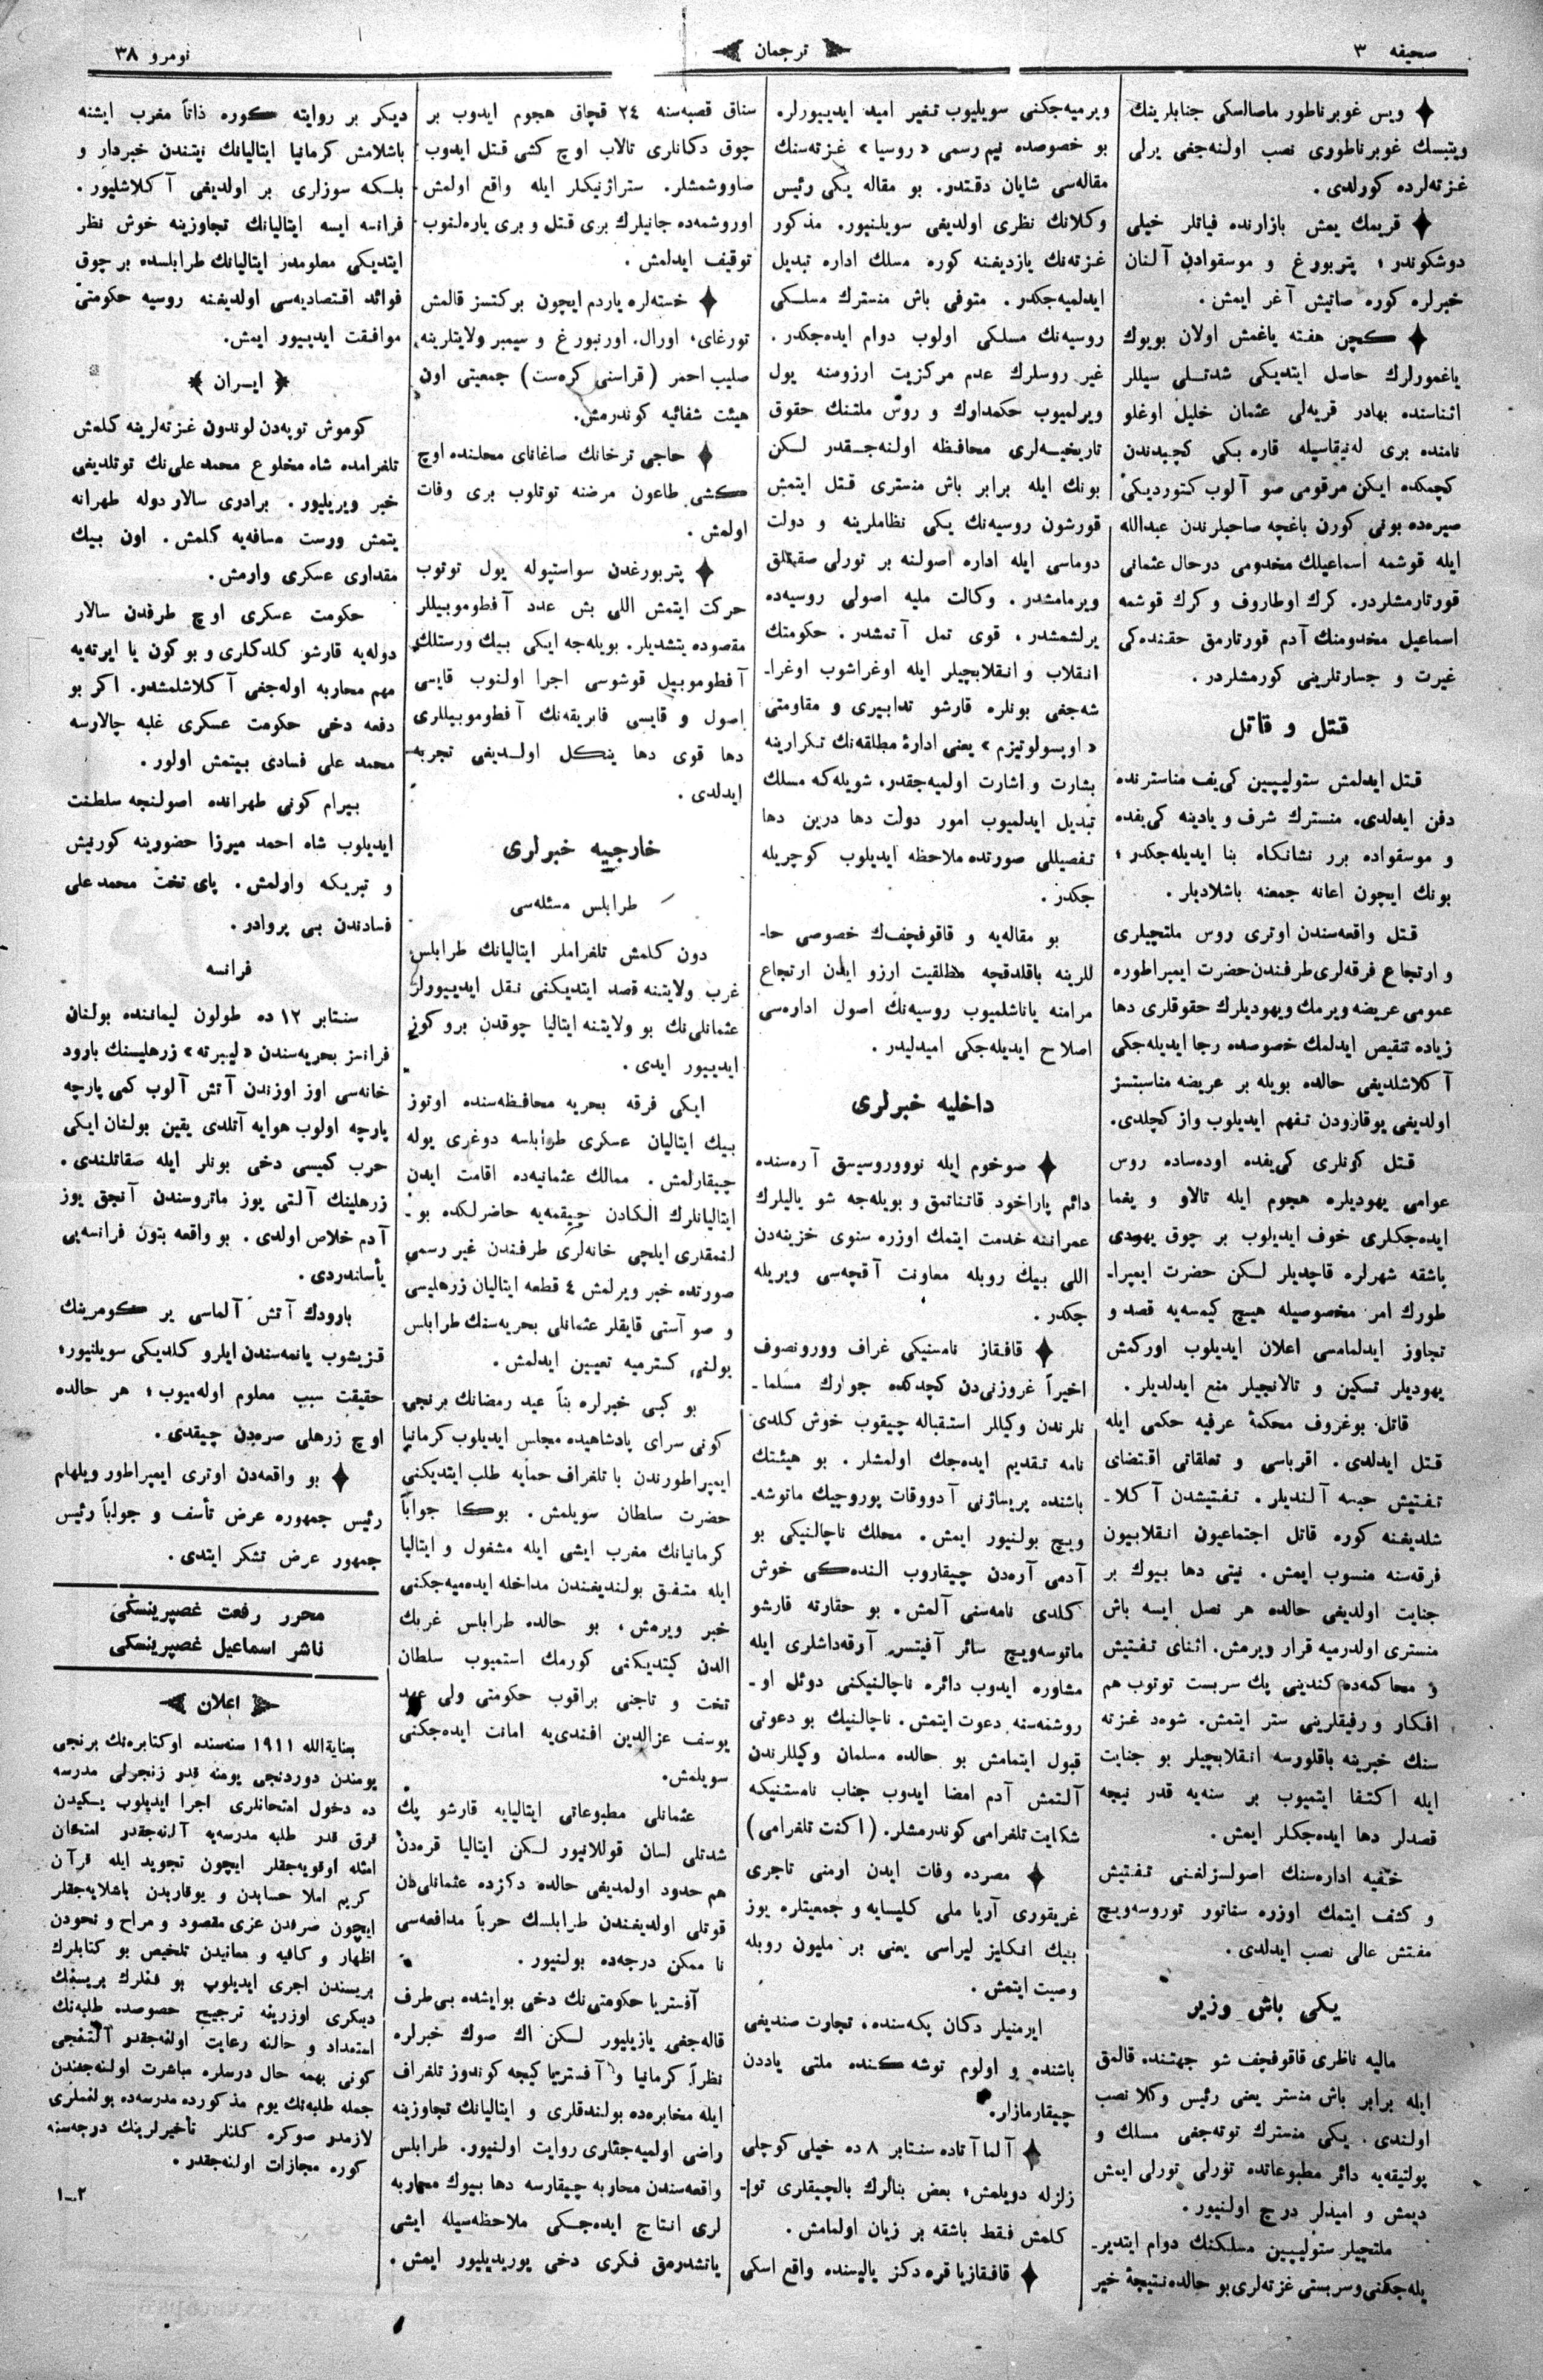 صحیفه ٣
ترجمان
نومرو ٣٨
ویس غوبرناطور ماصالسکی جنابلرینك
ویتبسك غوبرناطوری نصب اولنه‌جغی یرلی
غزته‌لرده کورلدی.
قریمك یمش بازارنده فیاتلر خیلی
دوشکوندر؛ پتربورغ و موسقوادن آلنان
خبرلره کوره صاتیش آغر ایمش.
کچن هفته یاغمش اولان بویوك
یاغمورلرك حاصل ایتدیکی شدتلی سیللر
اثناسنده بهادر قریه‌لی عثمان خلیل اوغلو
نامنده بری لنیقاسیله قاره بکی کچیدندن
کچمکده ایکن مرقومی صو آلوب کتوردیکی
صیره‌ده بونی کورن باغچه صاحبلرندن عبدالله
ایله قوشمه اسماعیلك مخدومی درحال عثمانی
قورتارمشلردر. کرك اوطاروف و کرك قوشمه
اسماعیل مخدومنك آدم قورتارمق حقنده‌کی
غیرت و جسارتلرینی کورمشلردر.
قتل و قاتل
قتل ایدلمش ستولیپین کی‌یف مناسترنده
دفن ایدلدی. منسترك شرف و یادینه کی‌یفده
و موسقواده برر نشانکاه بنا ایدیله‌جکدر؛
بونك ایچون اعانه جمعنه باشلادیلر.
قتل واقعه‌سندن اوتری روس ملتچیلری
و ارتجاع فرقه‌لری طرفندن حضرت ایمپراطوره
عمومی عریضه ویرمك ویهودیلرك حقوقلری دها
زیاده تنقیص ایدلمك خصوصده رجا ایدیله‌جکی
آکلاشلدیغی حالده بویله بر عریضه مناسبتسز
اولدیغی یوقارودن تفهم ایدیلوب واز کچلدی.
قتل کونلری کی‌یفده اوده‌ساده روس
عوامی یهودیلره هجوم ایله تالاو و یغما
ایده‌جکلری خوف ایدیلوب بر چوق یهودی
باشقه شهرلره قاچدیلر لکن حضرت ایمپرا-
طورك امر مخصوصیله هیچ کیمسه‌یه قصد و
تجاوز ایدلمامسی اعلان ایدیلوب اورکمش
یهودیلر تسکین و تالانجیلر منع ایدلدیلر.
قاتل بوغروف محکمهٔ عرفیه حکمی ایله
قتل ایدلدی. اقرباسی و تعلقاتی اقتضای
تفتیش حبسه آلندیلر. تفتیشدن آکلا-
شلدیغنه کوره قاتل اجتماعیون انقلابیون
فرقه‌سنه منسوب ایمش. نیتی دها بیوك بر
جنایت اولدیغی حالده هر نصل ایسه باش
منستری اولدرمیه قرار ویرمش. اثنای تفتیش
و محاکمه‌ده کندینی پك سربست توتوب هم
افکار و رفیقلرینی ستر ایتمش. شوه‌د غزته
سنك خبرینه باقلورسه انقلابچیلر بو جنایت
ایله اکتفا ایتمیوب بر سنه‌یه قدر نیچه
قصدلر دها ایده‌جکلر ایمش.
خفیه اداره‌سنك اصولسزلغنی تفتیش
و کشف ایتمك اوزره سناتور توروسه‌ویچ
مفتش عالی نصب ایدلدی.
یکی باش وزیر
مالیه ناظری قاقوفچف شو جهتنده قالمق
ایله برابر باش منستر یعنی رئیس وکلا نصب
اولندی. یکی منسترك توته‌جغی مسلك و
پولتیقه‌یه دائر مطبوعاتده تورلی تورلی ایمش
دیمش و امیدلر درج اولنیور.
ملتچیلر ستولیپین مسلکنك دوام ایتدیر-
یله‌جکنی و سربستی غزته‌لری بو حالده نتیجهٔ خیر
ویرمیه‌جکنی سویلیوب تغیر امید ایدییورلر.
بو خصوصده نیم رسمی «روسیا» غزته‌سنك
مقاله‌سی شایان دقتدر. بو مقاله یکی رئیس
وکلانك نظری اولدیغی سویلنیور. مذکور
غزته‌نك یازدیغنه کوره مسلك اداره تبدیل
ایدلمیه‌جکدر. متوفی باش منسترك مسلکی
روسیه‌نك مسلکی اولوب دوام ایده‌جکدر.
غیر روسلرك عدم مرکزیت ارزوسنه یول
ویرلمیوب حکمداوك و روس ملتنك حقوق
تاریخیه‌لری محافظه اولنه‌جقدر لکن
بونك ایله برابر باش منستری قتل ایتمش
قورشون روسیه‌نك یکی نظاملرینه و دولت
دوماسی ایله اداره اصولنه بر تورلی صقتلق
ویرمامشدر. وکالت ملیه اصولی روسیه‌ده
یرلشمشدر. قوی تمل آتمشدر. حکومتك
انقلاب و انقلابچیلر ایله اوغراشوب اوغرا-
شه‌جغی بونلره قارشو تدابیری و مقاومتی
«اوبسولوتیزم» یعنی ادارهٔ مطلقه‌نك تکرارینه
بشارت و اشارت اولمیه‌جقدر. شویله که مسلك
تبدیل ایدلمیوب امور دولت دها درین دها
تفصیللی صورتده ملاحظه ایدیلوب کوچریله
جکدر.
بو مقاله‌یه و قاقوفچف‌ك خصوصی حا-
للرینه باقلدقچه مطلقیت ارزو ایدن ارتجاع
مرامنه یاناشلمیوب روسیه‌نك اصول اداره‌سی
اصلاح ایدیله‌جکی امیدلیدر.
داخلیه خبرلری
صوخوم ایله نووروسیسق آره‌سنده
دائم پاراخود قاتناتمق و بویله‌جه شو یالیلرك
عمراننه خدمت ایتمك اوزره سنوی خزینه‌دن
اللی بیك روبله معاونت آقچه‌سی ویریله
جکدر.
قافقاز نامسنیکی غراف وورونصوف
اخیراً غروزنی‌دن کچدکده جوارك مسلما-
نلرندن وکیللر استقباله چیقوب خوش کلدی
نامه تقدیم ایده‌جك اولمشلر. بو هیئتك
باشنده پریساژنی آدووقات یوروچیك ماتوشه-
ویچ بولنیور ایمش. محلك ناچالنیکی بو
آدمی آره‌دن چیقاروب النده‌کی خوش
کلدی نامه‌سنی آلمش. بو حقارته قارشو
ماتوسه‌ویچ سائر آفیتسر آرقه‌داشلری ایله
مشاوره ایدوب دائره ناچالنیکنی دوئل او-
روشنه‌سنه دعوت ایتمش. ناچالنیك بو دعوتی
قبول ایتمامش بو حالده مسلمان وکیللرندن
آلتمش آدم امضا ایدوب جناب نامستنیکه
شکایت تلغرامی کوندرمشلر. (اکنت تلغرامی)
مصرده وفات ایدن اومنی تاجری
غریغوری آریا ملی کلیسایه و جمعیتلره یوز
بیك انکلیز لیراسی یعنی بر ملیون روبله
وصیت ایتمش.
ایرمنیلر دکان بکه‌سنده، تجاوت صندیغی
باشنده و اولوم توشه‌کنده ملتی یاددن
چیقارمازلر.
آلما آتاده سنتابر ٨ ده خیلی کوچلی
زلزله دویلمش؛ بعض بنالرك بالچیقلری تو-
کلمش فقط باشقه بر زیان اولمامش.
قافقازیا قره دکز یالیسنده واقع اسکی
سناق قصبه‌سنه ٢٤ قچاق هجوم ایدوب بر
چوق دکانلری تالاب اوچ کشی قتل ایدوب
صاووشمشلر. ستراژنیکلر ایله واقع اولمش
اوروشمه‌ده جانیلرك بری قتل و بری یاره‌لنوب
توقیف ایدلمش.
خسته‌لره یاردم ایچون برکتسز قالمش
تورغای، اورال، اورنبورغ و سیمبر ولایتلرینه
صلیب احمر (قراسنی کره‌ست) جمعیتی اون
هیئت شفائیه کوندرمش.
حاجی ترخانك صاغانای محلنده اوچ
کشی طاعون مرضنه توتلوب بری وفات
اولمش.
پتربورغدن سواستپوله یول توتوب
حرکت ایتمش اللی بش عدد آفطوموبیللر
مقصوده یتشدیلر. بویله‌جه ایکی بیك ورستلك
آفطوموبیل قوشوسی اجرا اولنوب قایسی
اصول و قایسی فابریقه‌نك آفطوموبیللری
دها قوی دها ینکل اولدیغی تجربه
ایدلدی.
خارجیه خبرلری
طرابلس مسئله‌سی
دون کلمش تلغراملر ایتالیانك طرابلس
غرب ولایتنه قصد ایتدیکنی نقل ایدییوولر
عثمانلی‌نك بو ولایتنه ایتالیا چوقدن برو کوز
ایدییور ایدی.
ایکی فرقه بحریه محافظه‌سنده اوتوز
بیك ایتالیان عسکری طرابلسه دوغری یوله
چیقارلمش. ممالك عثمانیه‌ده اقامت ایدن
ایتالیانلرك الکادن چیقمه‌یه حاضرلکده بو-
لنمقلری ایلچی خانه‌لری طرفندن غیر رسمی
صورتده خبر ویرلمش ٤ قطعه ایتالیان زرهلیسی
و صو آستی قایقلر عثمانلی بحریه‌سنك طرابلس
یولنی کسترمیه تعیین ایدلمش.
بو کبی خبرلره بناً عید رمضانك برنجی
کونی سرای پادشاهیده مجلس ایدیلوب کرمانیا
ایمپراطورندن با تلغراف حمایه طلب ایتدیکنی
حضرت سلطان سویلمش. بوکا جواباً
کرمانیانك مغرب ایشی ایله مشغول و ایتالیا
ایله متفق بولندیغندن مداخله ایده‌میه‌جکنی
خبر ویرمش، بو حالده طرابلس غربك
الدن کیتدیکنی کورمك استمیوب سلطان
تخت و تاجنی براقوب حکومتی ولی عهد
یوسف عزالدین افندی‌یه امانت ایده‌جکنی
سویلمش.
عثمانلی مطبوعاتی ایتالیایه قارشو پك
شدتلی لسان قوللانیور لکن ایتالیا قره‌دن
هم حدود اولمدیغی حالده دکزده عثمانلی‌دان
قوتلی اولدیغندن طرابلسك حرباً مدافعه‌سی
نا ممکن درجه‌ده بولنیور.
آفستریا حکومتی‌نك دخی بو ایشده بی طرف
قاله‌جغی یازیلیور لکن اك صوك خبرلره
نظراً کرمانیا و آفستریا کیجه کوندوز تلغراف
ایله مخابره‌ده بولندقلری و ایتالیانك تجاوزینه
راضی اولمیه‌جقلری روایت اولنیور. طرابلس
واقعه‌سندن محاربه چیقارسه دها بیوك محاربه
لری انتاج ایده‌جکی ملاحظه‌سیله ایشی
یاتشدرمق فکری دخی یوریدیلیور ایمش.
دیکر بر روایته کوره ذاتاً مغرب ایشنه
باشلامش کرمانیا ایتالیانك نیتندن خبردار و
بلکه سوزلری بر اولدیغی آکلاشلیور.
فرانسه ایسه ایتالیانك تجاوزینه خوش نظر
ایتدیکی معلومدر ایتالیانك طرابلسده بر چوق
فوائد اقتصادیه‌سی اولدیغنه روسیه حکومتی
موافقت ایدییور ایمش.
ایران
کوموش توبه‌دن لوندون غزته‌لرینه کلمش
تلغرامده شاه مخلوع محمد علی‌نك توتلدیغی
خبر ویریلیور. برادری سالار دوله طهرانه
یتمش ورست مسافه‌یه کلمش. اون بیك
مقداری عسکری وارمش.
حکومت عسکری اوچ طرفدن سالار
دوله‌یه قارشو کلدکلری و بو کون یا ایرته‌یه
مهم محاربه اوله‌جغی آکلاشلمشدر. اکر بو
دفعه دخی حکومت عسکری غلبه چالارسه
محمد علی فسادی بیتمش اولور.
بیرام کونی طهرانده اصولنجه سلطنت
ایدیلوب شاه احمد میرزا حضورینه کورنیش
و تبریکه وارلمش. پای تخت محمد علی
فسادندن بی پروادر.
فرانسه
سنتابر ١٢ ده طولون لیماننده بولنان
فرانسز بحریه‌سندن «لیبرته» زرهلیسنك بارود
خانه‌سی اوز اوزندن آتش آلوب کمی پارچه
پارچه اولوب هوایه آتلدی یقین بولنان ایکی
حرب کمیسی دخی بونلر ایله صقاتلندی.
زرهلینك آلتی یوز ماتروسندن آنجق یوز
آدم خلاص اولدی. بو واقعه بتون فرانسه‌یی
یأساندردی.
بارودك آتش آلماسی یر کومرینك
قزیشوب یانمه‌سندن ایلرو کلدیکی سویلنیور؛
حقیقت سبب معلوم اوله‌میوب؛ هر حالده
اوچ زرهلی صره‌دن چیقدی.
بو واقعه‌دن اوتری ایمپراطور ویلهام
رئیس جمهوره عرض تأسف و جواباً رئیس
جمهور عرض تشکر ایتدی.
محرر رفعت غصپرینسکی
ناشر اسماعیل غصپرینسکی
اعلان
بعنایة‌الله ١٩١١ سنه‌سنده اوکتابره‌نك برنجی
یومندن دوردنجی یومنه قدر زنجرلی مدرسه
ده دخول امتحانلری اجرا ایدیلوب یکیدن
قرق قدر طلبه مدرسه‌یه آلنه‌جقدر امتحان
امثله اوقویه‌جقلر ایچون تجوید ایله قرآن
کریم املا حسابدن و یوقاریدن باشلایه‌جقلر
ایچون صرفدن عزی مقصود و مراح و نحودن
اظهار و کافیه و معانیدن تلخیص بو کتابلرك
بریسندن اجری ایدیلوب بو فنلرك بریسنك
دیکری اوزرینه ترجیح خصوصده طلبه‌نك
استعداد و حالنه رعایت اولنه‌جقدر آلتنجی
کونی بهمه حال درسلره مباشرت اولنه‌جغندن
جمله طلبه‌نك یوم مذکورده مدرسه‌ده بولنملری
لازمدر صوکره کلنلر تأخیرلرینك درجه‌سنه
کوره مجازات اولنه‌جقدر.
٢—١